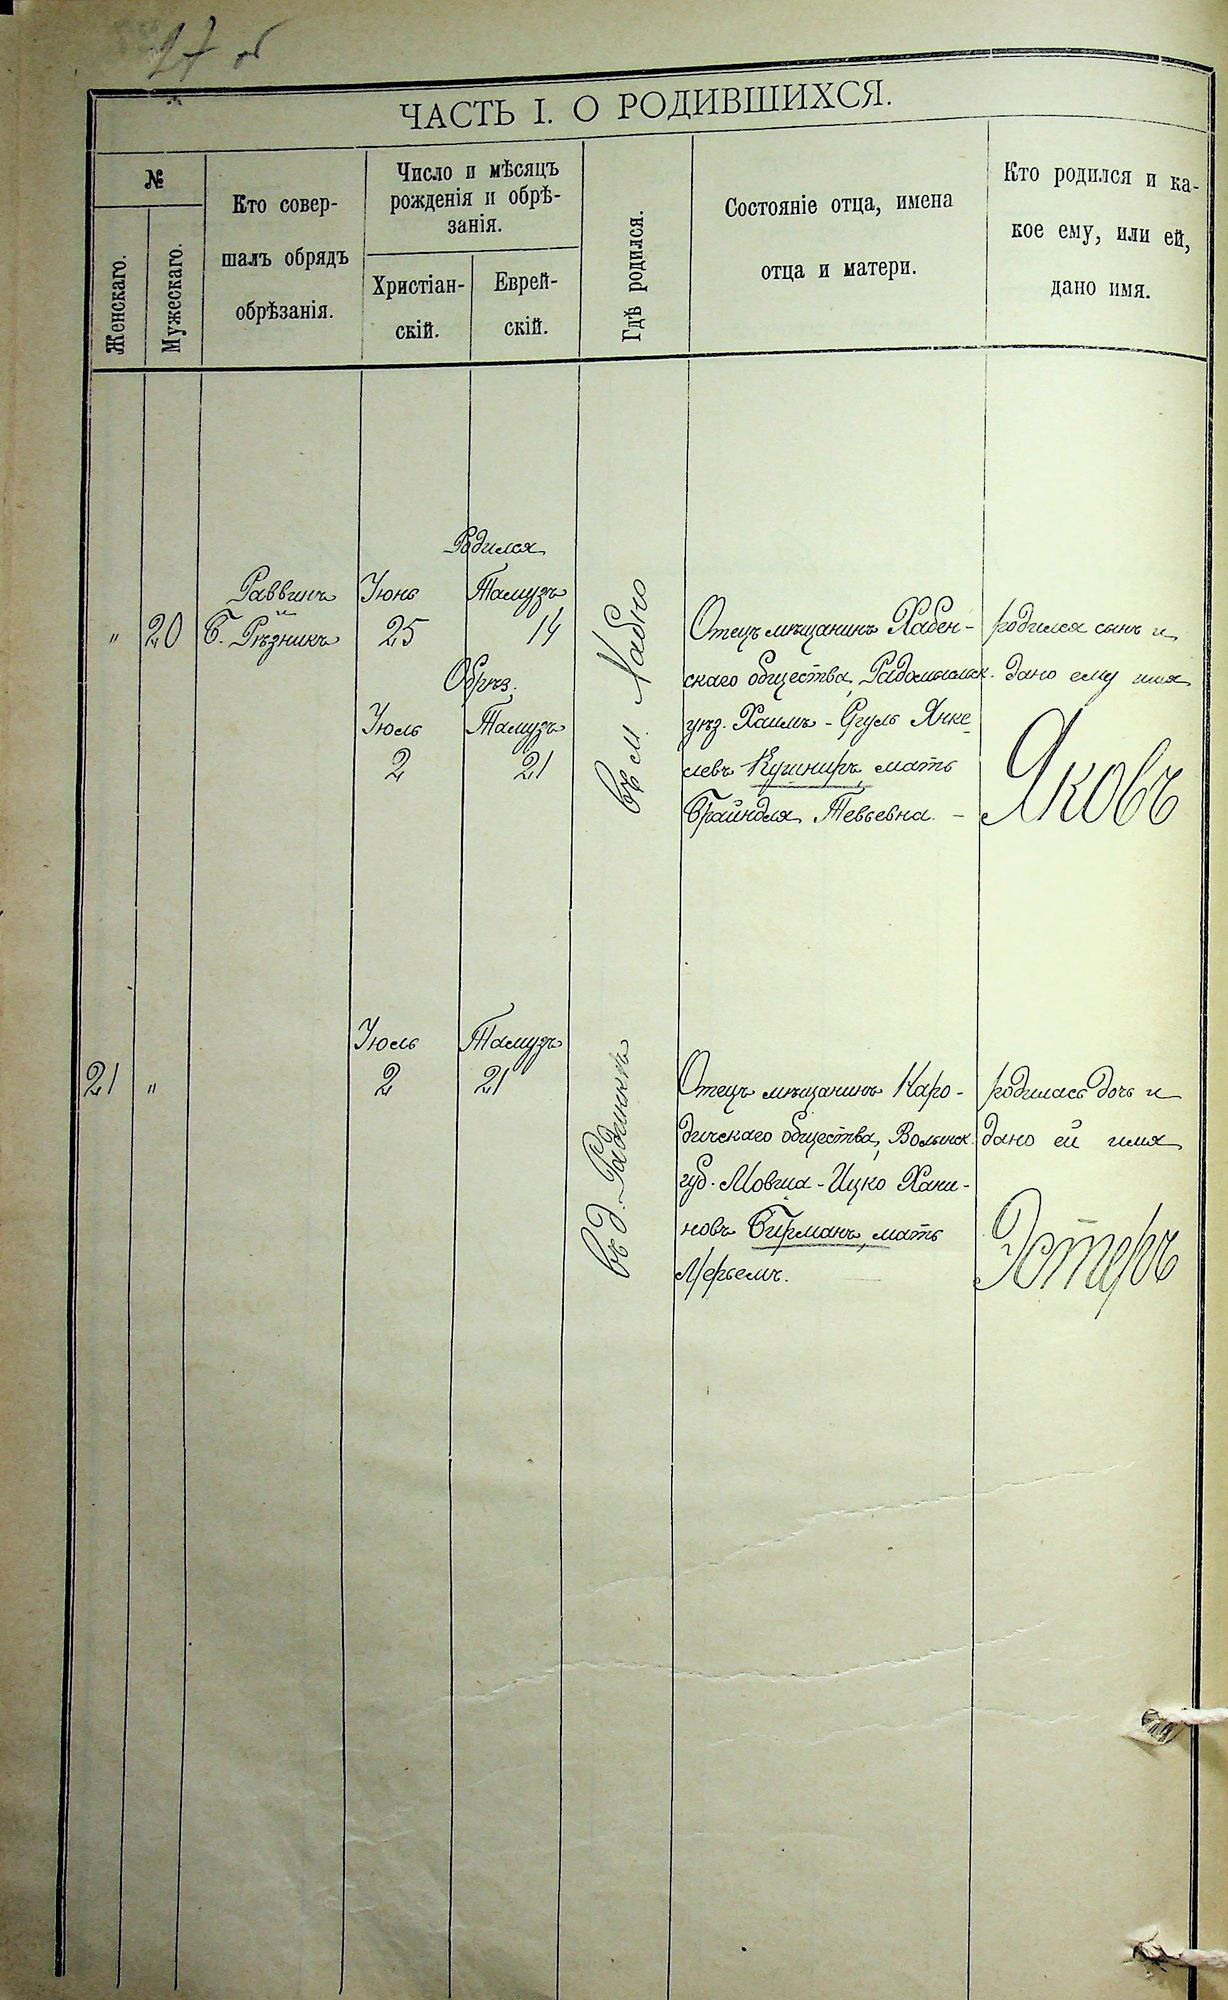 27 об
ЧАСТЬ I. О РОДИВШИХСЯ.
№
Женскаго.
Мужескаго.
Кто совер-
шалъ обрядъ
обрѣзанія.
Число и мѣсяцъ
рожденія и обрѣ-
занія.
Христіан-
скій.
Еврей-
скій.
Гдѣ родился.
Состояніе отца, имена
отца и матери.
Кто родился и ка-
кое ему, или ей,
дано имя.
"
20
Раввинъ
и
Б. Рѣзникъ
Родился
Іюнь Тамузъ
25 14
Обрѣз.
Іюль Тамузъ
2 21
въ м. Хабно
Отецъ мѣщанинъ Хабен-
скаго общества, Радомысльск.
уѣз. Хаимъ-Сруль Янке
левъ Кушниръ, мать
Брайндля Тевьевна. -
родился сынъ и
дано ему имя
Яковъ
21
"
Іюль Тамузъ
2 21
въ д.
Отецъ мѣщанинъ Наро-
дичскаго общества, Волынск.
губ. Мовша-Ицко Хаки-
новъ Бирманъ, мать
Мерьемъ.
родилась дочь и
дано ей имя
Эстеръ